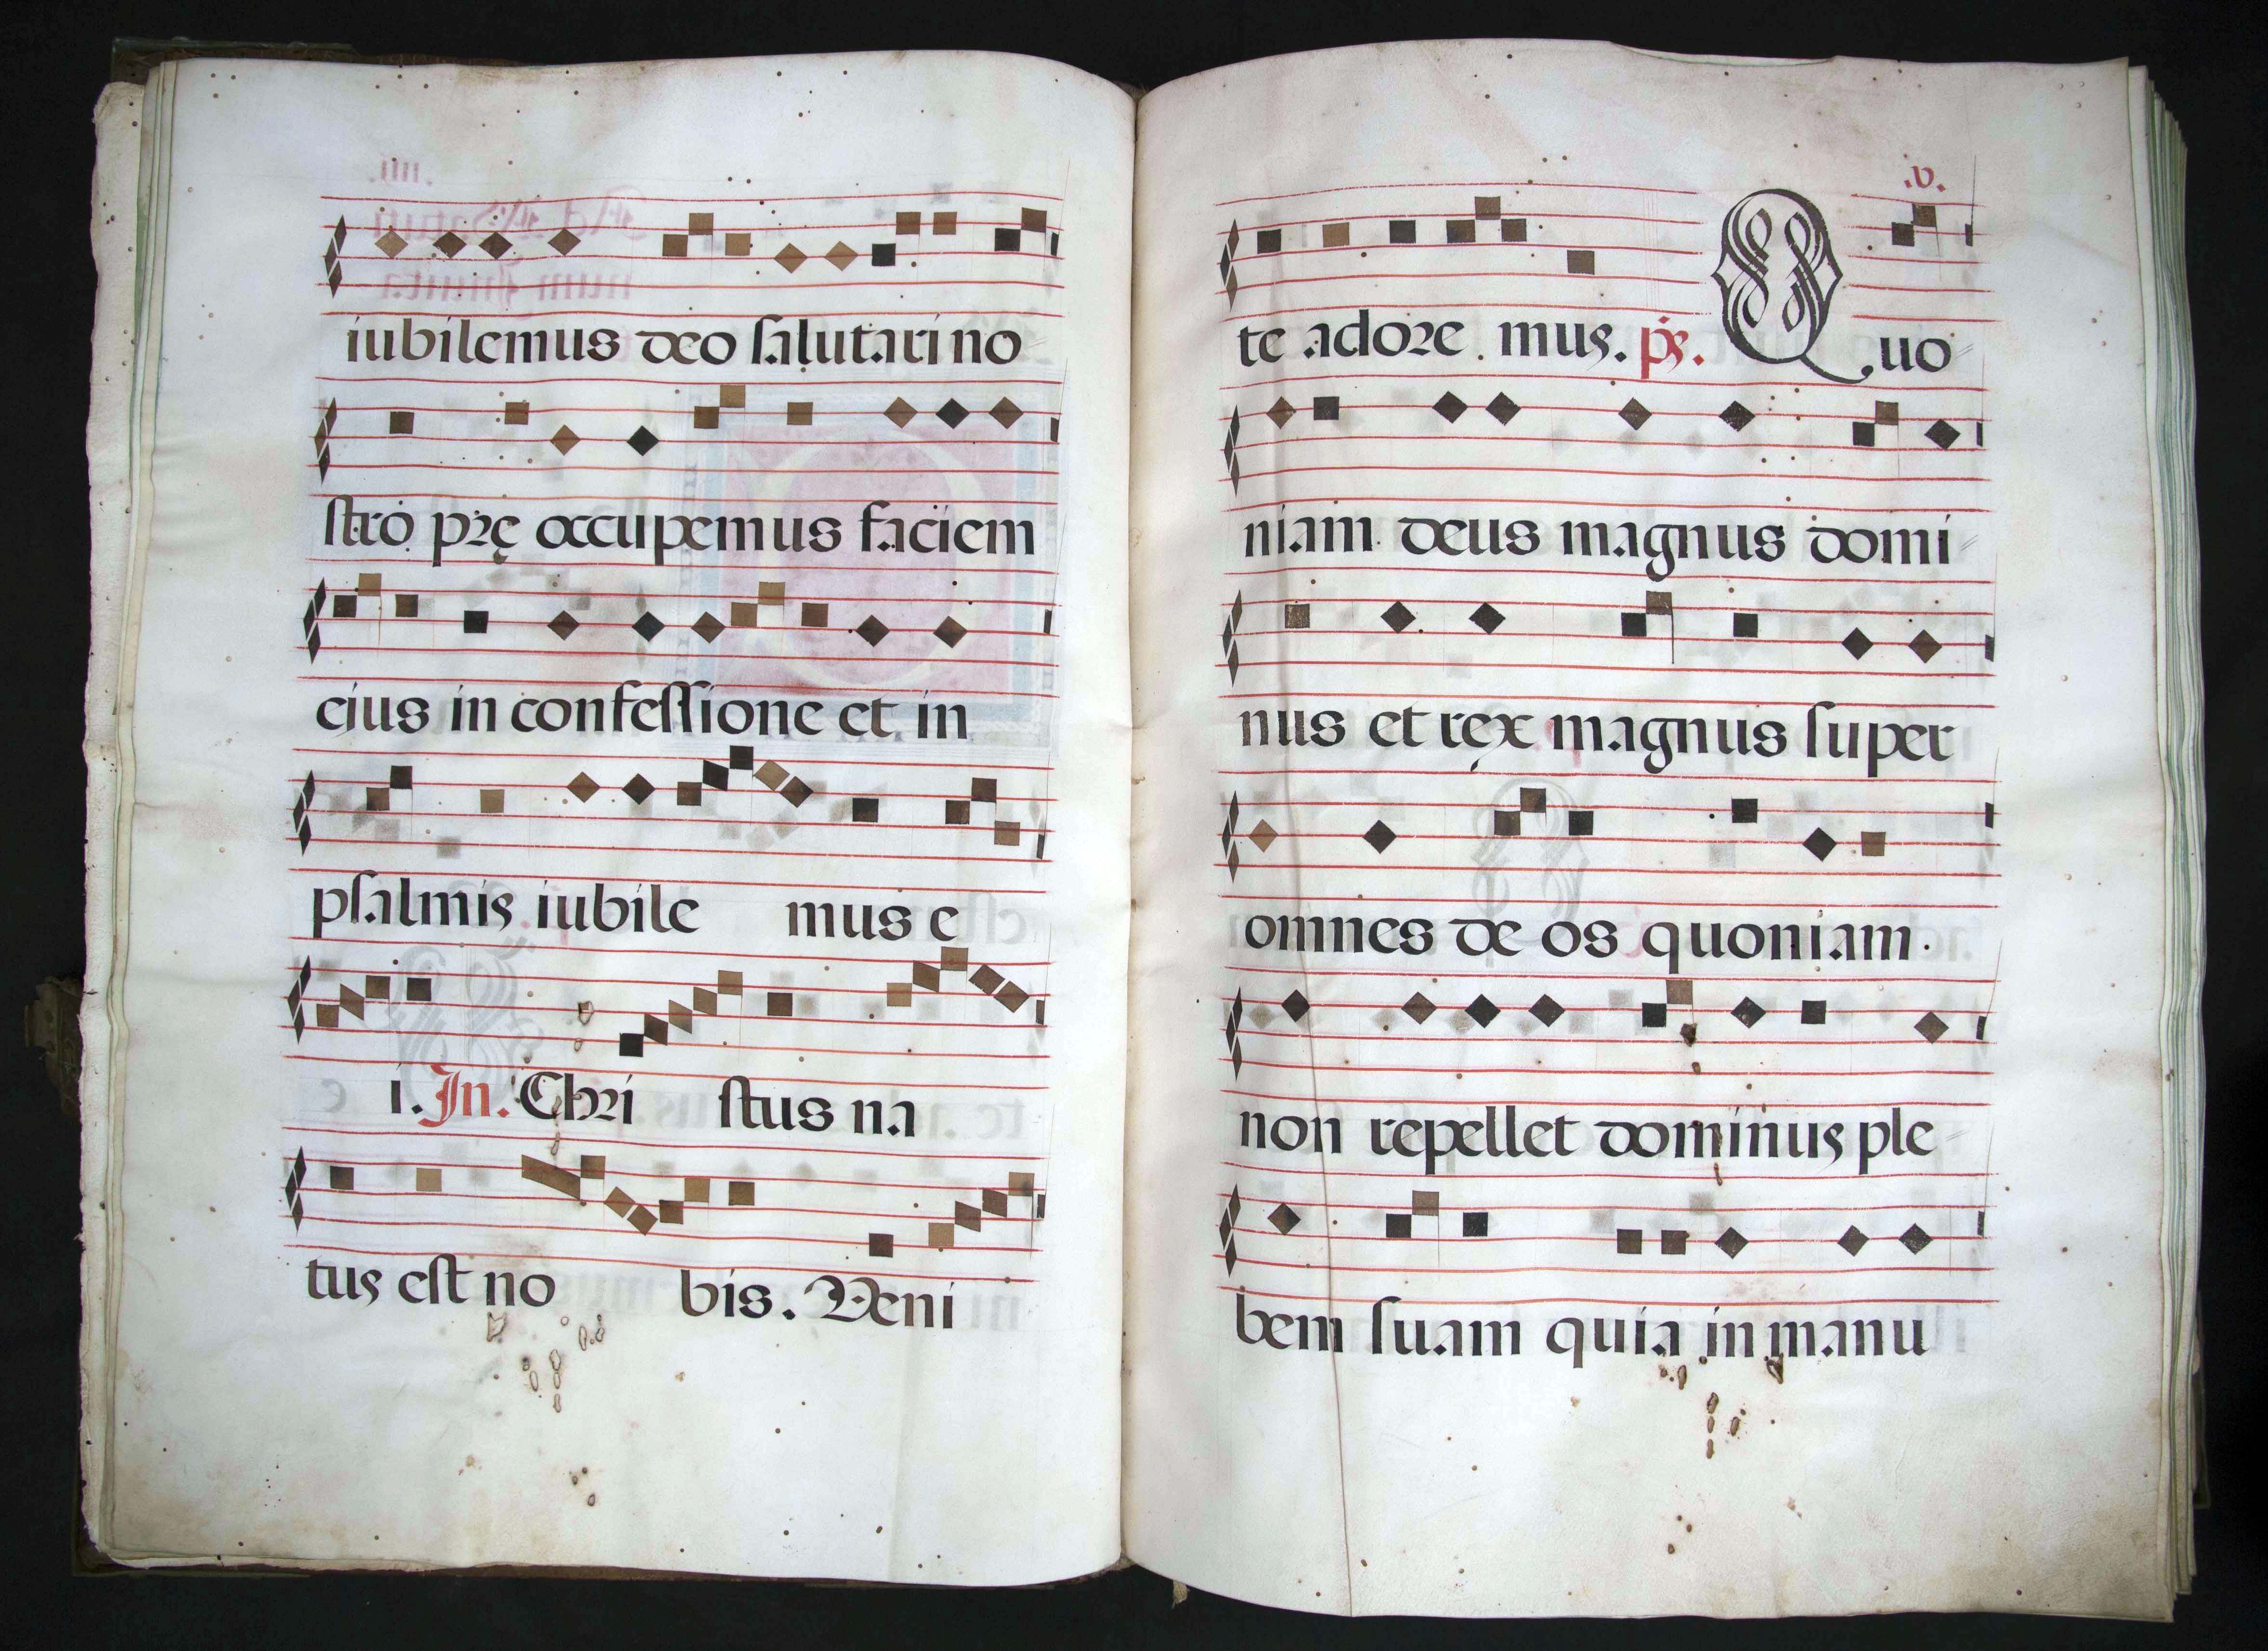 iubilemus deo salutari no
stro pre occupemus faciem
ejus in confessione et in
psalmis iubile mus e
i. In. Chri stus na
tus est no bis. Veni
.v.
te adore mus. ps. Quo
niam deus magnus domi
nus et rex magnus super
omnes de os quoniam.
non repellet dominus ple
bem suam quia in manu